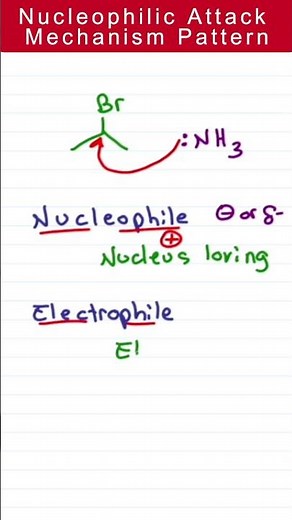 Nucleophilic Attack
Mechanism Pattern
Br
:NH3
Nucleophile ⊖ or δ-
⊕
Nucleus loving
Electrophile
El